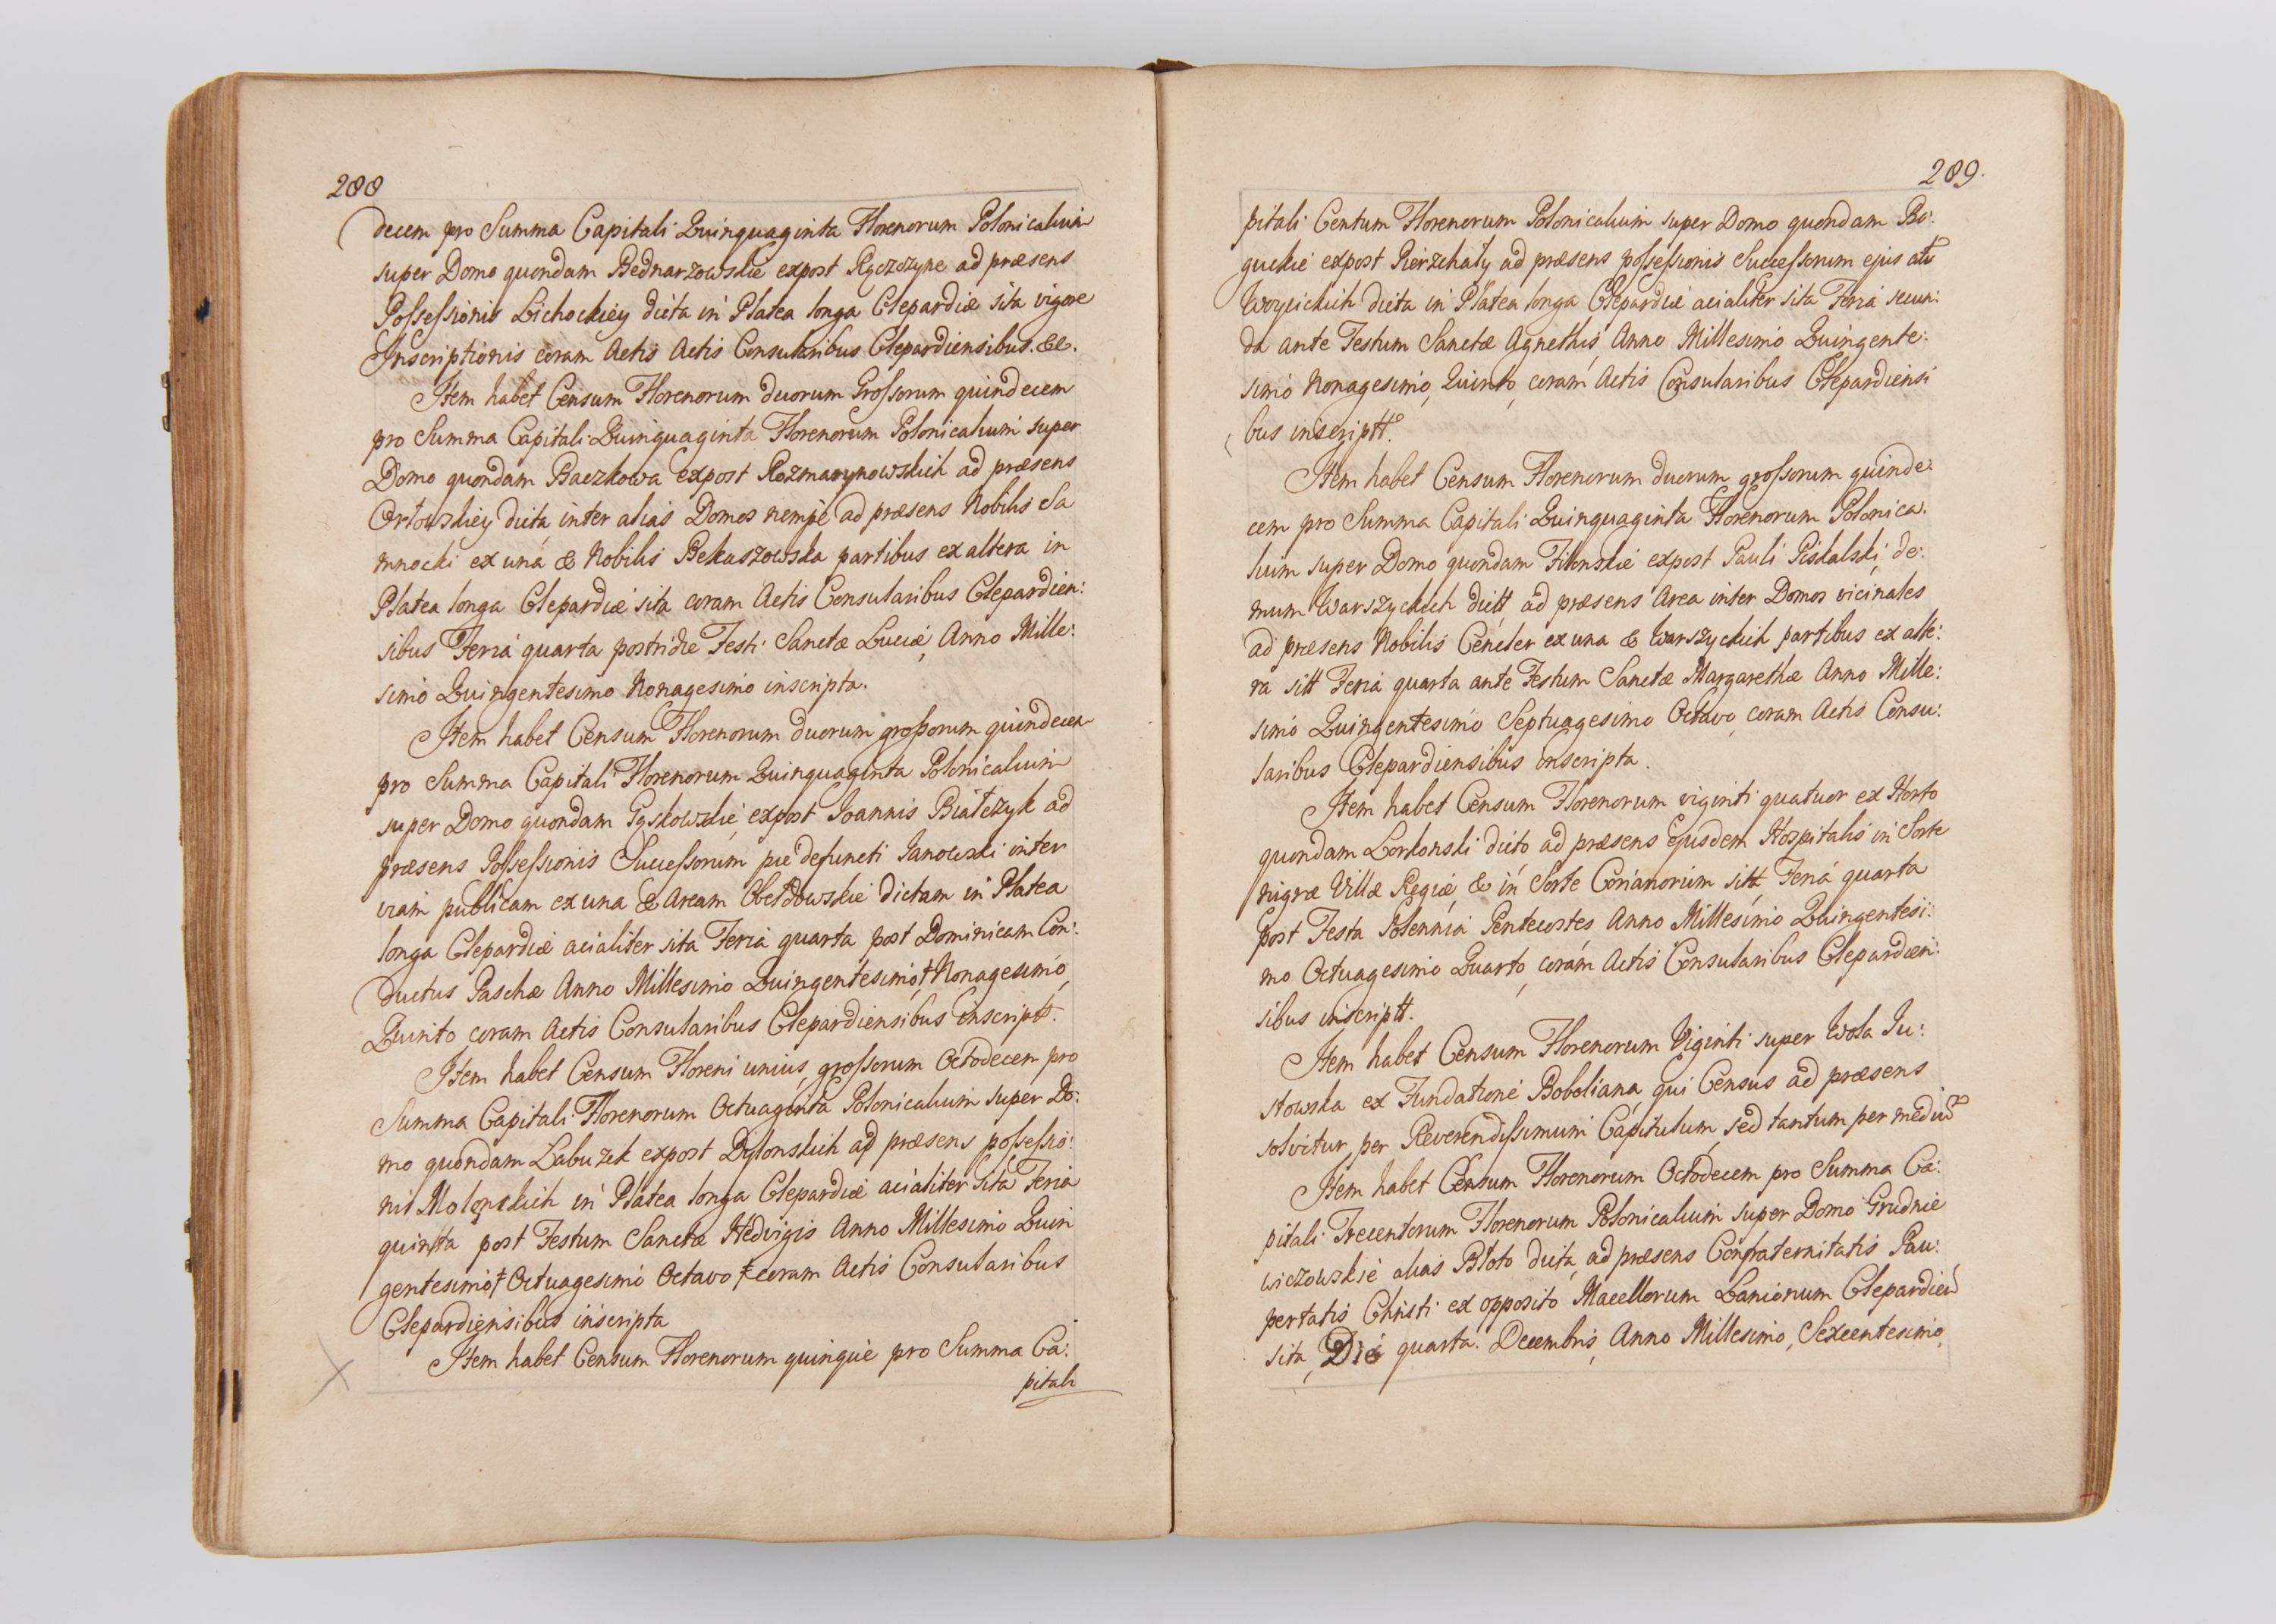 288
decem pro Summa Capitali Quinquaginta Florenorum Polonicalium
super Domo quondam Bednarzowskie expost Rączczyne ad præsens
Possessionis Lichockiey dicta in Platea longa Clepardiæ sita vigore
Inscriptionis coram Actis Actis Consularibus Clepardiensibus. &c.
Item habet Censum Florenorum duorum Grossorum quindecem
pro Summa Capitali Quinquaginta Florenorum Polonicalium super
Domo quondam Baczkowa expost Rozmarynowskich ad præsens
Orłowskiey dicta inter alias Domos nempe ad præsens Nobilis Sa
mnocki ex una & Nobilis Bekaszowska partibus ex altera in
Platea longa Clepardiæ sita coram Actis Consularibus Clepardien:
sibus Feria quarta postridie Festi Sanctæ Luciæ, Anno Mille:
simo Quingentesimo Nonagesimo inscripta.
Item habet Censum Florenorum duorum grossorum quindecem
pro Summa Capitali Florenorum Quinquaginta Polonicalium
super Domo quondam Pyskowskie expost Joannis Białczyk ad
præsens Possessionis Successorum pie defuncti Janowski inter
viam publicam ex una & Aream dictam in Platea
longa Clepardiæ acialiter sita Feria quarta post Dominicam Con:
ductus Paschæ Anno Millesimo Quingentesimo † Nonagesimo,
Quinto coram Actis Consularibus Clepardiensibus inscriptt.
Item habet Censum Floreni unius, grossorum Octodecem pro
Summa Capitali Florenorum Octuaginta Polonicalium super Do:
mo quondam Labuzek expost Dylonskich ad præsens possessio:
nis Molenskich in Platea longa Clepardiæ acialiter Sita Feria
quinta post Festum Sanctæ Hedvigis Anno Millesimo Quin
gentesimo † Octuagesimo Octavo ‡ coram Actis Consularibus
Clepardiensibus inscripta
Item habet Censum Florenorum quinque pro Summa Ca:
pitali
289.
pitali Centum Florenorum Polonicalium super Domo quondam Bo:
guckie expost Pierzchały ad præsens possessionis Successorum ejus
Woycickich dicta in Platea longa Clepardiæ acialiter sita Feria secun:
da ante Festum Sanctæ Agnethis, Anno Millesimo Quingente:
simo Nonagesimo, Quinto, coram Actis Consularibus Clepardiensi
bus inscriptt.
Item habet Censum Florenorum duorum grossorum quinde:
cem pro Summa Capitali Quinquaginta Florenorum Polonica:
lium super Domo quondam Filonskie expost Pauli Piskalski, de:
mum Warszyckich dictt ad præsens Area inter Domos vicinales
ad præsens Nobilis Cencler ex una & Warszyckich partibus ex alte:
ra sitt Feria quarta ante Festum Sanctæ Margarethæ Anno Mille:
simo Quingentesimo Septuagesimo Octavo, coram Actis Consu:
laribus Clepardiensibus inscripta.
Item habet Censum Florenorum viginti quatuor ex Horto
quondam Lorkonski dicto ad præsens ejusdem Hospitalis in Sorte
nigræ Villæ Regiæ, & in Sorte Corianorum sitt Feria quarta
post Festa Solennia Pentecostes Anno Millesimo Quingentesi:
mo Octuagesimo Quarto, coram Actis Consularibus Clepardien:
sibus inscriptt.
Item habet Censum Florenorum Viginti super Wola Ju:
stowska ex Fundatione Boboliana, qui Census ad præsens
solvitur per Reverendissimum Capitulum, sed tantum per mediũ
Item habet Censum Florenorum Octodecem pro Summa Ca:
pitali Trecentorum Florenorum Polonicalium super Domo Grudnie
wiczowskie alias Błoto dicta, ad præsens Confraternitatis Pau:
pertatis Christi ex opposito Macellorum Lanionum Clepardien
sita, Die quarta Decembris, Anno Millesimo, Sexcentesimo,